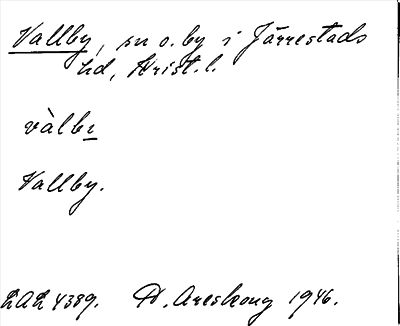 Vallby, sn o. by i Järrestads
hd, Krist. l.
vàlbɪ
Vallby.
LAL 4389. D. Areskoug 1946.